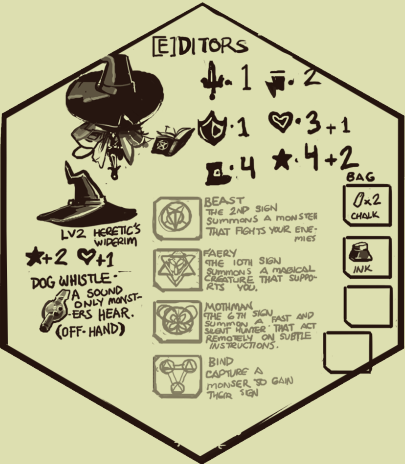 [E]DITORS
1 2
1 3+1
4 4+2
BAG
x2
CHALK
INK
LV2 HERETIC'S
WIDERIM
+2 +1
DOG WHISTLE-
A SOUND
ONLY MONST-
ERS HEAR.
(OFF-HAND)
BEAST
THE 2ND SIGN
SUMMONS A MONSTER
THAT FIGHTS YOUR ENE-
MIES
FAERY
THE 10TH SIGN
SUMMONS A MAGICAL
CREATURE THAT SUPPO-
RTS YOU.
MOTHMAN
THE 6TH SIGN
SUMMON A FAST AND
SILENT HUNTER THAT ACT
REMOTELY ON SUBTLE
INSTRUCTIONS.
BIND
CAPTURE A
MONSER TO GAIN
THEIR SIGN